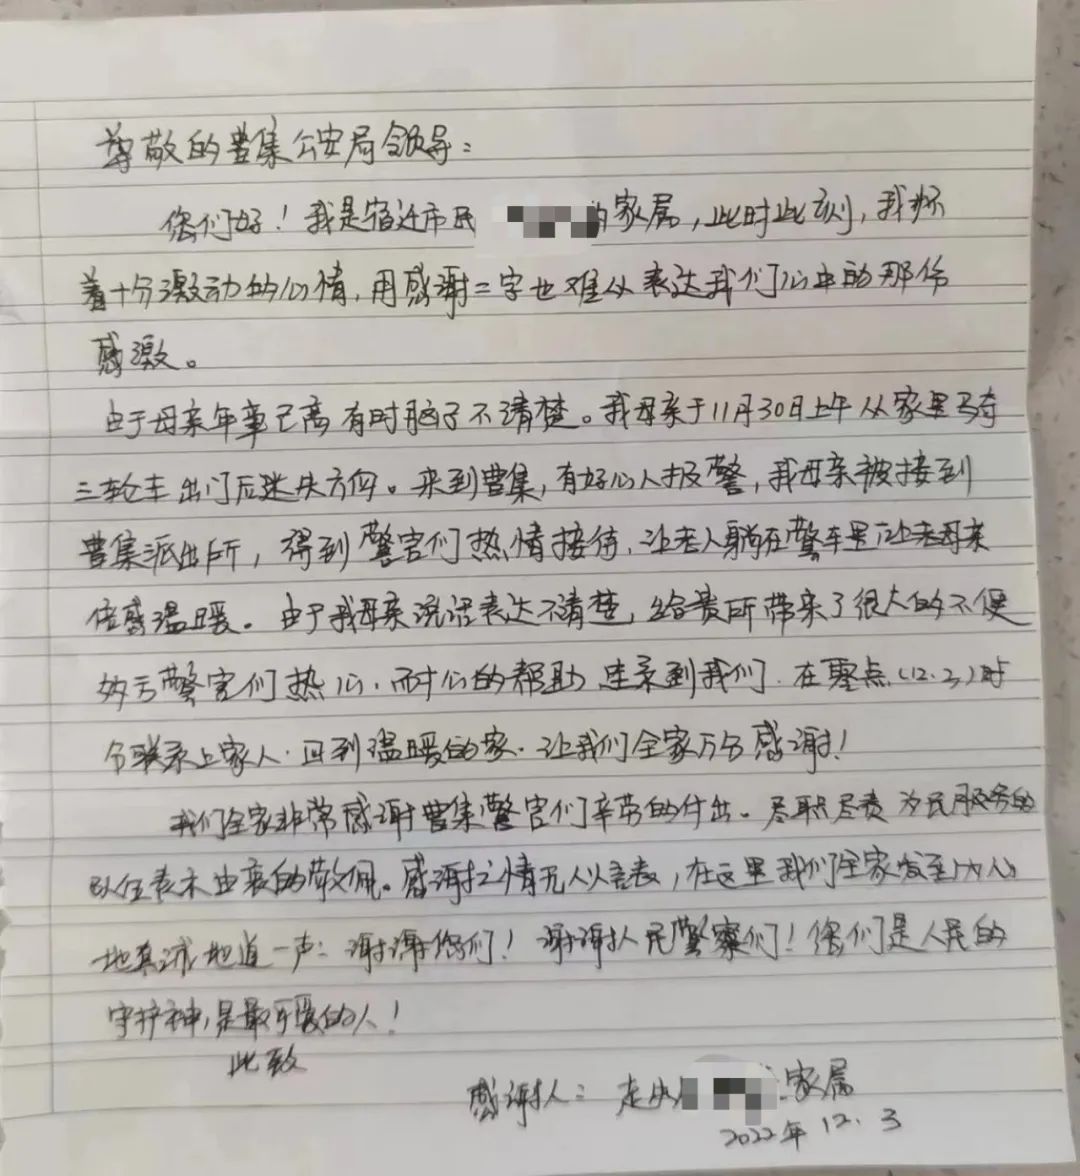 尊敬的曹集公安局领导:
您们好!我是宿迁市民 的家属,此时此刻,我怀
着十分激动的心情,用感谢二字也难从表达我们心中的那份
感激。
由于母亲年事已高有时脑子不清楚。我母亲于11月30日上午从家里骑
三轮车出门后迷失方向。来到曹集,有好心人报警,我母亲被接到
曹集派出所,得到警官们热情接待,让老人躺在警车里 让老母亲
倍感温暖。由于我母亲说话表达不清楚,给贵所带来了很大的不便
妈亏警官们热心.耐心的帮助 联系到我们.在零点(12.3)时
分联系上家人.回到温暖的家.让我们全家万分感谢!
我们全家非常感谢曹集警官们辛劳的付出。尽职尽责 为民服务的
队伍表示由衷的敬佩。感谢之情无以言表,在这里我们全家发至内心
地真诚地道一声:谢谢您们!谢谢人民警察们!您们是人民的
守护神,是最可爱的人!
此致
感谢人: 家属
2022年12.3